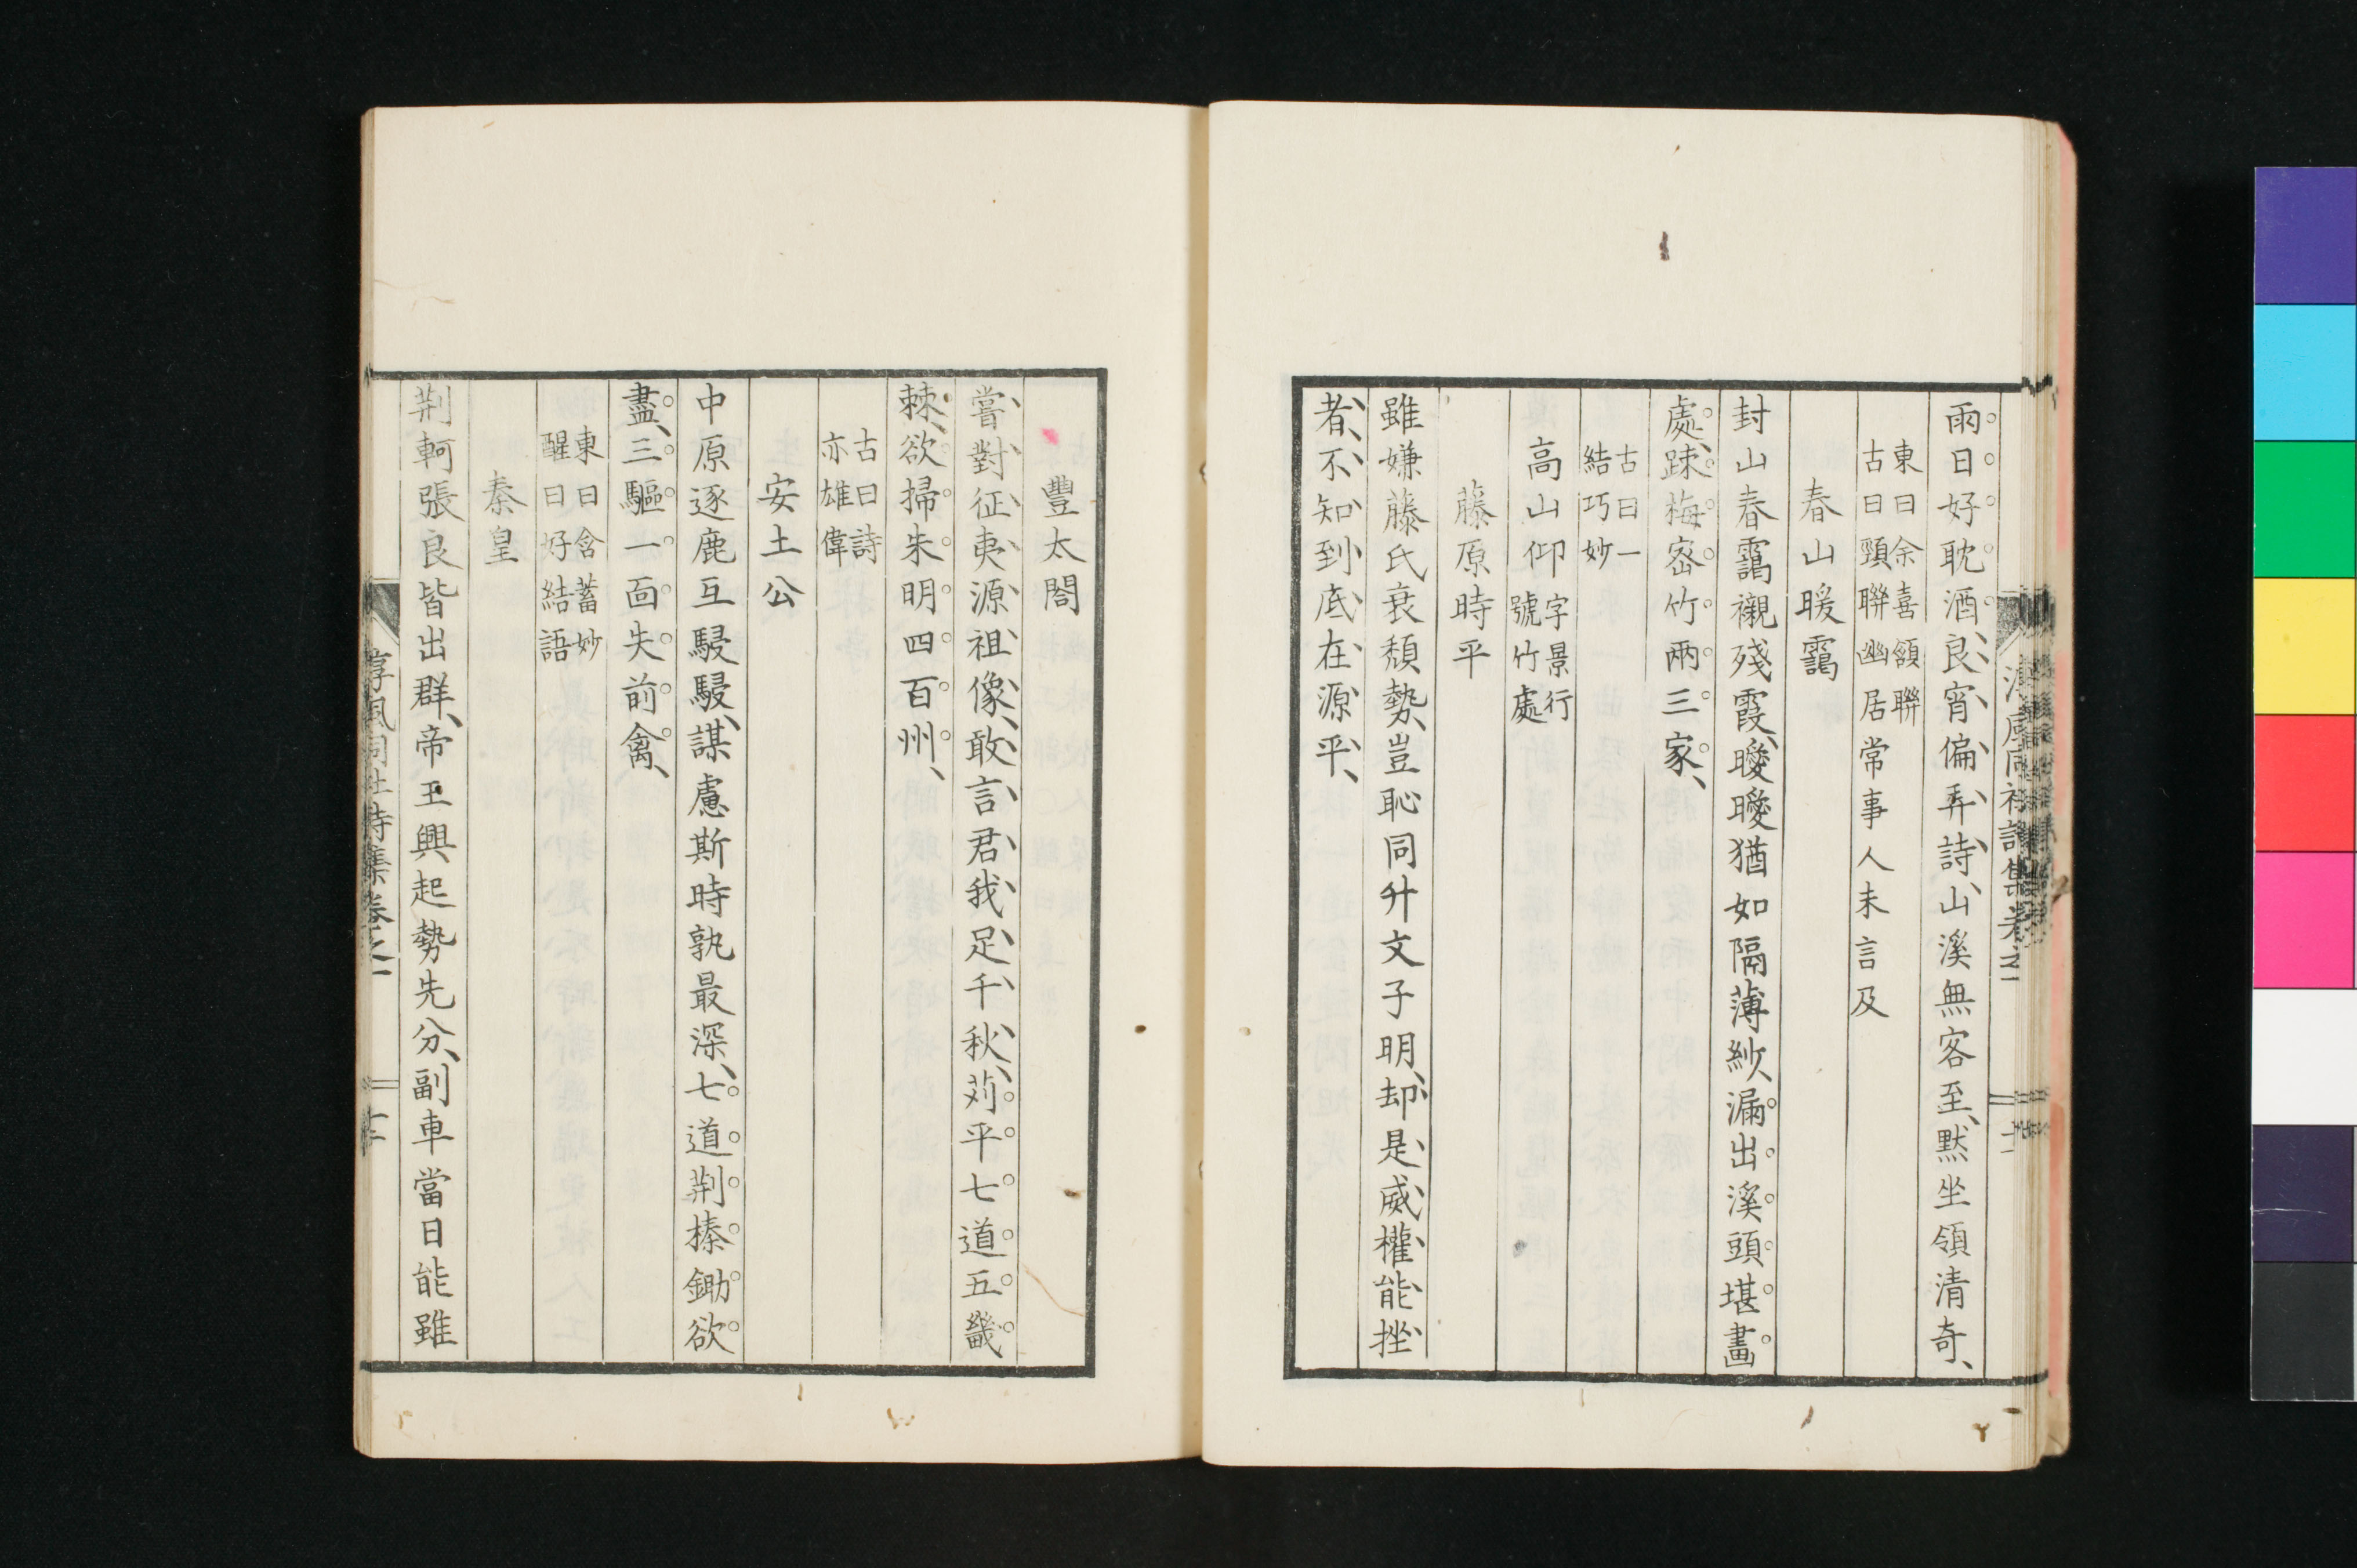 雨日好耽酒、良宵偏弄詩、山溪無客至、默坐領清奇、
東曰余喜頷聯
古曰頸聯幽居常事人未言及
春山暖靄
封山春靄襯殘霞、曖曖猶如隔薄紗、漏出溪頭堪畫
處、疎梅密竹兩三家、
古曰一
結巧妙
高山仰 字景行
號竹處
藤原時平
雖嫌藤氏衰頽勢、豈恥同升文子明、却是威權能挫
者、不知到底在源平、
豐太閤
嘗對征夷源祖像、敢言君我足千秋、苅平七道五畿
棘、欲掃朱明四百州、
古曰詩
亦雄偉
安土公
中原逐鹿互駸駸、謀慮斯時孰最深、七道荆榛鋤欲
盡、三驅一面失前禽、
東曰含蓄妙
醒曰好結語
秦皇
荆軻張良皆出群、帝王興起勢先分、副車當日能雖
淳風同社詩集卷之一